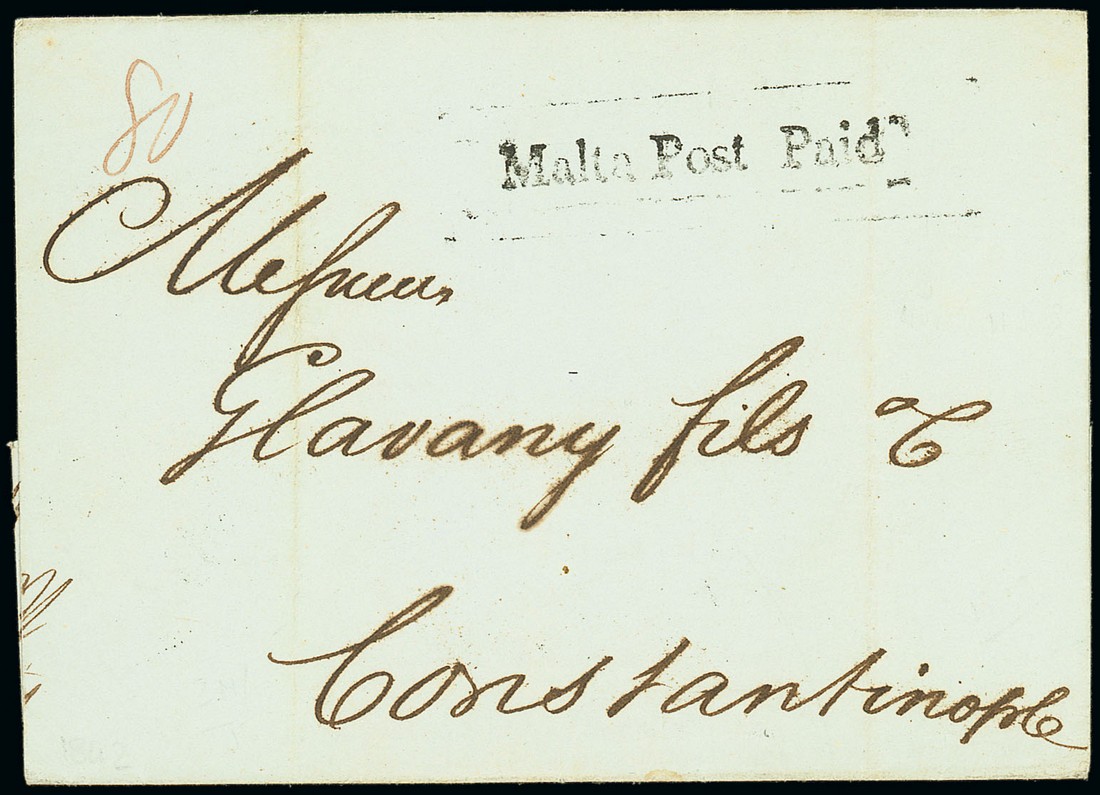 80
Malta Post Paid
Messieurs
Glavany fils & C
Constantinople
1842